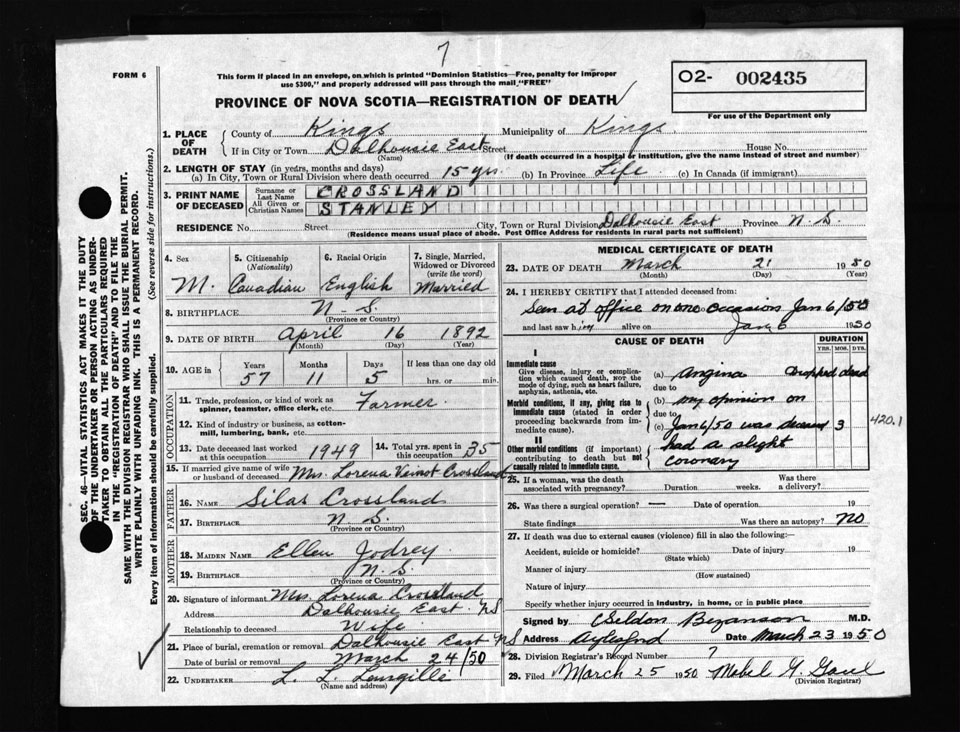 7
FORM 6
This form if placed in an envelope, on which is printed "Dominion Statistics—Free, penalty for improper
use $300," and properly addressed will pass through the mail "FREE"
PROVINCE OF NOVA SCOTIA—REGISTRATION OF DEATH
O2- 002435
For use of the Department only
1. PLACE OF DEATH
County of Kings Municipality of Kings
If in City or Town Dalhousie East Street House No.
(Name) (If death occurred in a hospital or institution, give the name instead of street and number)
2. LENGTH OF STAY (in years, months and days)
(a) In City, Town or Rural Division where death occurred 15 yrs. (b) In Province Life (c) In Canada (if immigrant)
3. PRINT NAME OF DECEASED
Surname or Last Name CROSSLAND
All Given or Christian Names STANLEY
RESIDENCE No. Street City, Town or Rural Division Dalhousie East Province N.S.
(Residence means usual place of abode. Post Office Address for residents in rural parts not sufficient)
4. Sex
M.
5. Citizenship (Nationality)
Canadian
6. Racial Origin
English
7. Single, Married, Widowed or Divorced (write the word)
Married
8. BIRTHPLACE N.S.
(Province or Country)
9. DATE OF BIRTH April 16 1892
(Month) (Day) (Year)
10. AGE in
Years Months Days If less than one day old
57 11 5 hrs. or min.
OCCUPATION
11. Trade, profession, or kind of work as spinner, teamster, office clerk, etc. Farmer
12. Kind of industry or business, as cotton-mill, lumbering, bank, etc.
13. Date deceased last worked at this occupation 1949
14. Total yrs. spent in this occupation 35
15. If married give name of wife or husband of deceased Mrs. Lorena Veinot Crossland
FATHER
16. NAME Silas Crossland
17. BIRTHPLACE N.S.
(Province or Country)
MOTHER
18. MAIDEN NAME Ellen Jodrey
19. BIRTHPLACE N.S.
(Province or Country)
20. Signature of informant Mrs. Lorena Crossland
Address Dalhousie East NS
Relationship to deceased Wife
21. Place of burial, cremation or removal Dalhousie East NS
Date of burial or removal March 24/50
22. UNDERTAKER L. L.
(Name and address)
MEDICAL CERTIFICATE OF DEATH
23. DATE OF DEATH March 21 1950
(Month) (Day) (Year)
24. I HEREBY CERTIFY that I attended deceased from:
Seen at office on one occasion Jan 6/50
and last saw him alive on Jan 6 1950
CAUSE OF DEATH
DURATION
YRS. MOS. DYS.
I
Immediate cause
Give disease, injury or complication which caused death, NOT the mode of dying, such as heart failure, asphyxia, asthenia, etc.
(a) Angina Dropped dead
due to
Morbid conditions, if any, giving rise to immediate cause (stated in order proceeding backwards from immediate cause).
(b) my opinion on
due to
(c) Jan 6/50 was deceased 3
420.1
II
Other morbid conditions (if important) contributing to death but not causally related to immediate cause.
had a slight
coronary
25. If a woman, was the death associated with pregnancy? Duration weeks. Was there a delivery?
26. Was there a surgical operation? — Date of operation. 19
State findings Was there an autopsy? No
27. If death was due to external causes (violence) fill in also the following:—
Accident, suicide or homicide? Date of injury 19
(State which)
Manner of injury
(How sustained)
Nature of injury
Specify whether injury occurred in industry, in home, or in public place
Signed by Seldon Bezanson M.D.
Address Aylesford Date March 23 1950
28. Division Registrar's Record Number 7
29. Filed March 25 1950 Mabel Y. Gaul
(Division Registrar)
SEC. 46—VITAL STATISTICS ACT MAKES IT THE DUTY
OF THE UNDERTAKER OR PERSON ACTING AS UNDER-
TAKER TO OBTAIN ALL THE PARTICULARS REQUIRED
IN THE "REGISTRATION OF DEATH" AND TO FILE THE
SAME WITH THE DIVISION REGISTRAR WHO SHALL ISSUE THE BURIAL PERMIT.
WRITE PLAINLY WITH UNFADING INK. THIS IS A PERMANENT RECORD.
Every item of Information should be carefully supplied. (See reverse side for instructions.)